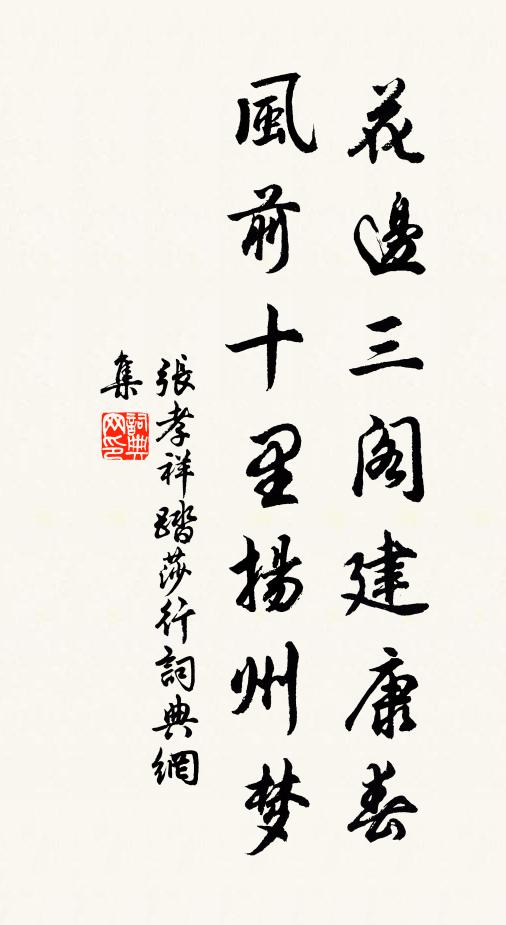 花邊三阁建康春
風前十里揚州梦
張孝祥踏莎行詞典網
集
詞典网印